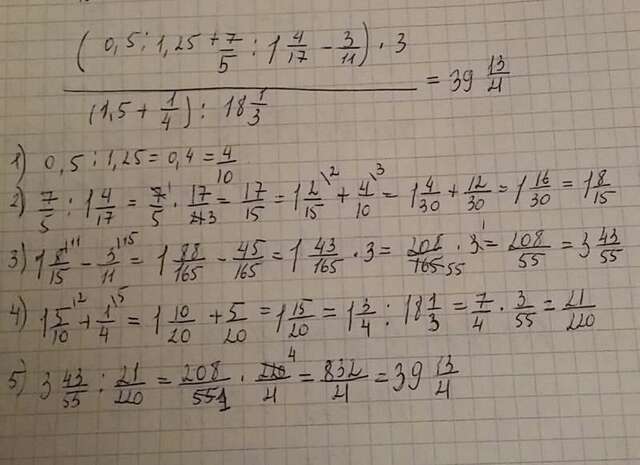 (0,5 : 1,25 + 7/5 : 1 4/17 - 3/11) · 3
= 39 13/4
(1,5 + 1/4) : 18 1/3
1) 0,5 : 1,25 = 0,4 = 4/10
2) 7/5 : 1 4/17 = 7/5 · 17/213 = 17/15 = 1 2/15 \2 + 4/10 \3 = 1 4/30 + 12/30 = 1 16/30 = 1 8/15
3) 1 8/15 \11 - 3/11 \15 = 1 88/165 - 45/165 = 1 43/165 · 3 = 208/165 55 · 3 1 = 208/55 = 3 43/55
4) 1 5/10 \2 + 1/4 \5 = 1 10/20 + 5/20 = 1 15/20 = 1 3/4 : 18 1/3 = 7/4 · 3/55 = 21/220
5) 3 43/55 : 21/220 = 208/55 1 · 220 4/4 = 832/4 = 39 13/4